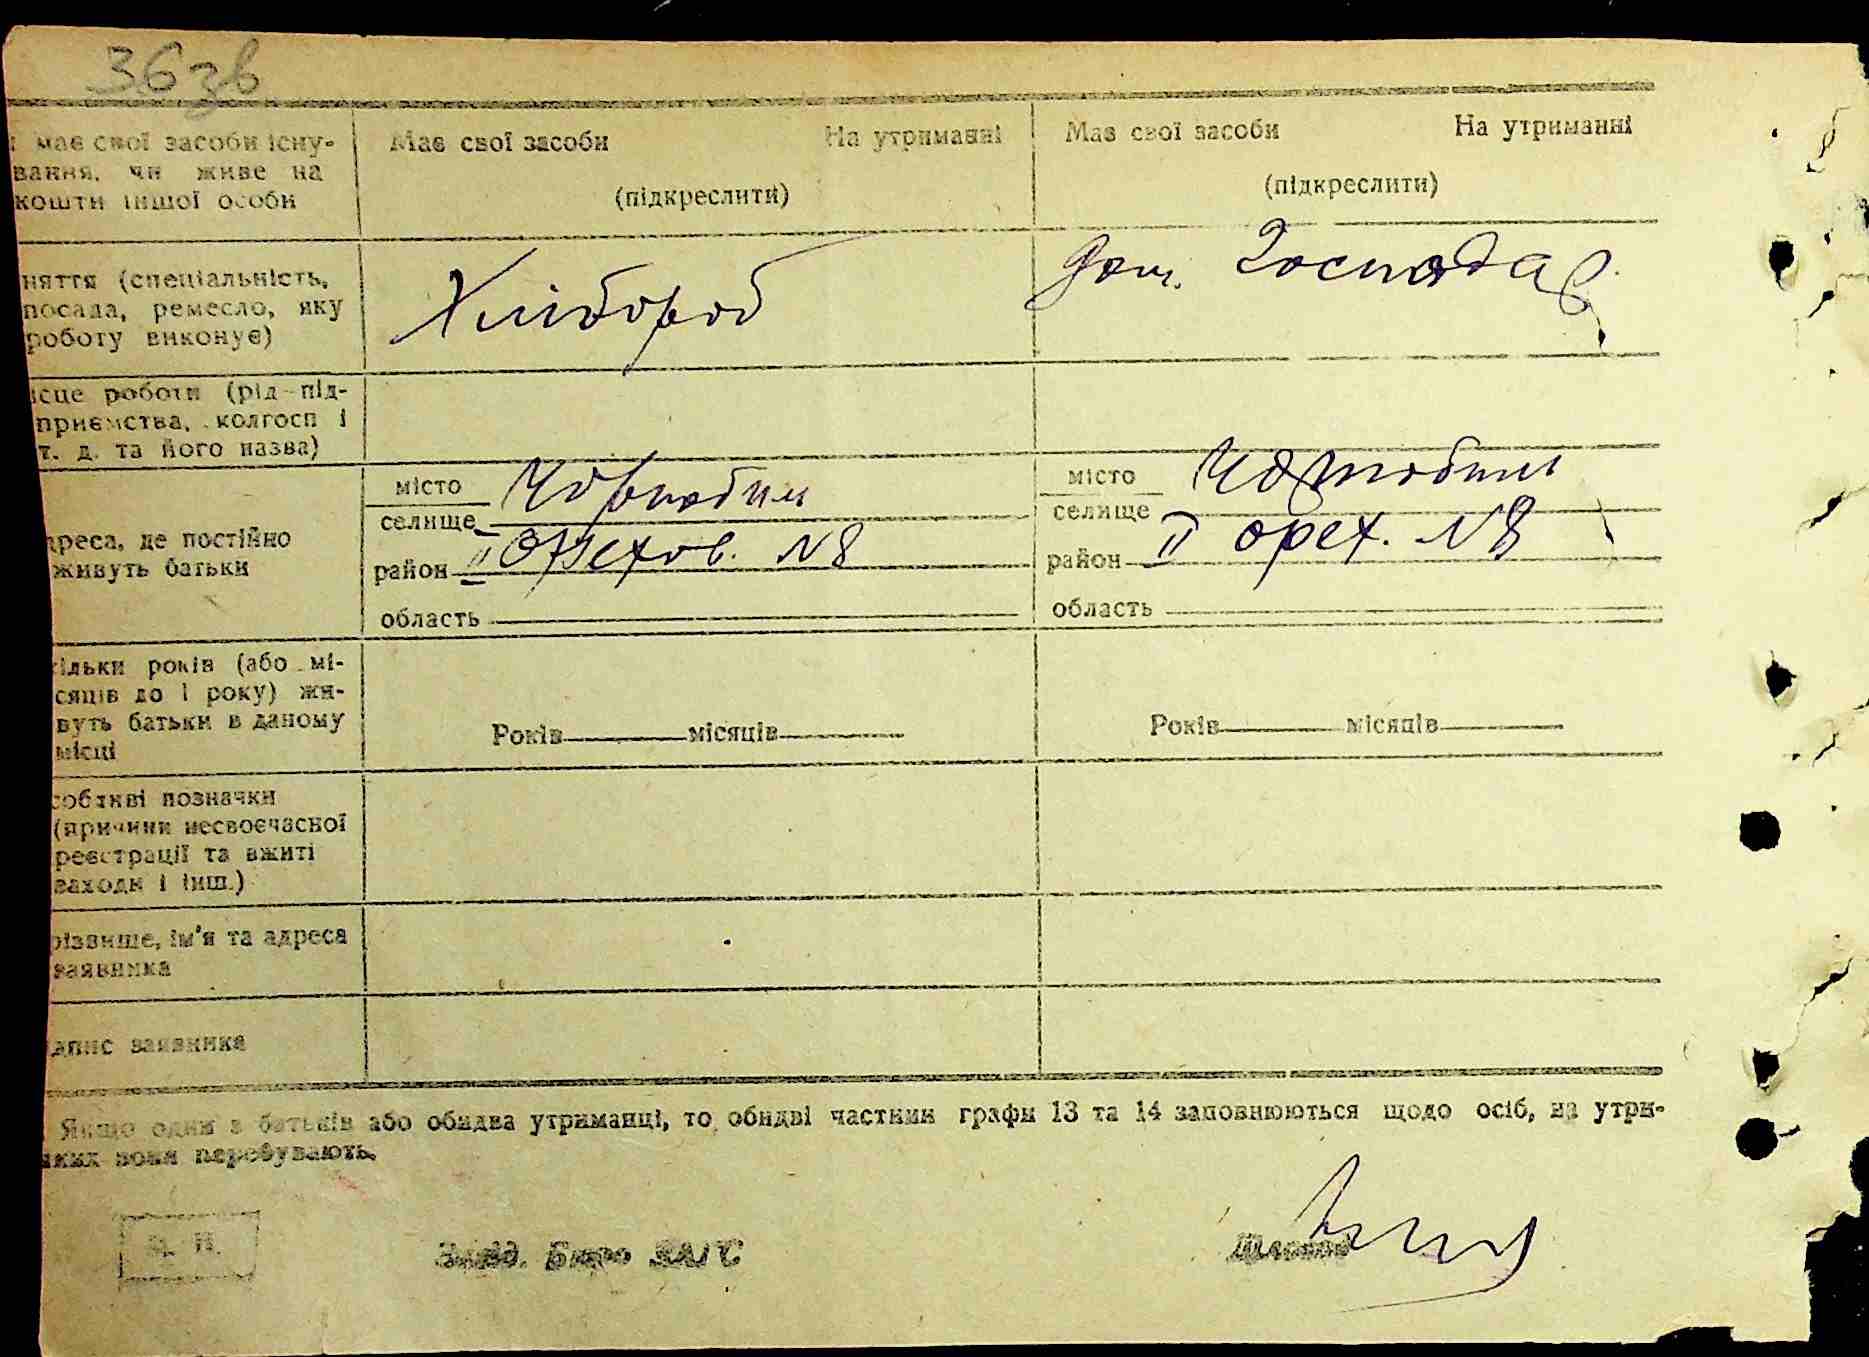 36зв
має свої засоби існу- Має свої засоби На утриманні Має свої засоби На утриманні
вання, чи живе на
кошти іншої особи (підкреслити) (підкреслити)
няття (спеціальність, Хлібороб дом. Господар.
посада, ремесло, яку
роботу виконує)
ісце роботи (рід під-
приємства, колгосп і
т. д. та його назва)
дреса, де постійно
живуть батьки
місто Чорнобиль місто Чорнобиль
селище селище
район II Орехов. N8 район II орех. N8
область область
ільки років (або мі-
сяців до 1 року) жи-
вуть батьки в даному
місці
Років місяців Років місяців
собливі позначки
(причини несвоєчасної
реєстрації та вжиті
заходи і інш.)
різвище, ім'я та адреса
заявника
дпис заявника
Якщо один з батьків або обидва утриманці, то обидві частини графи 13 та 14 заповнюються щодо осіб, на утри-
яких вони перебувають.
Завід. Бюро ЗАГС